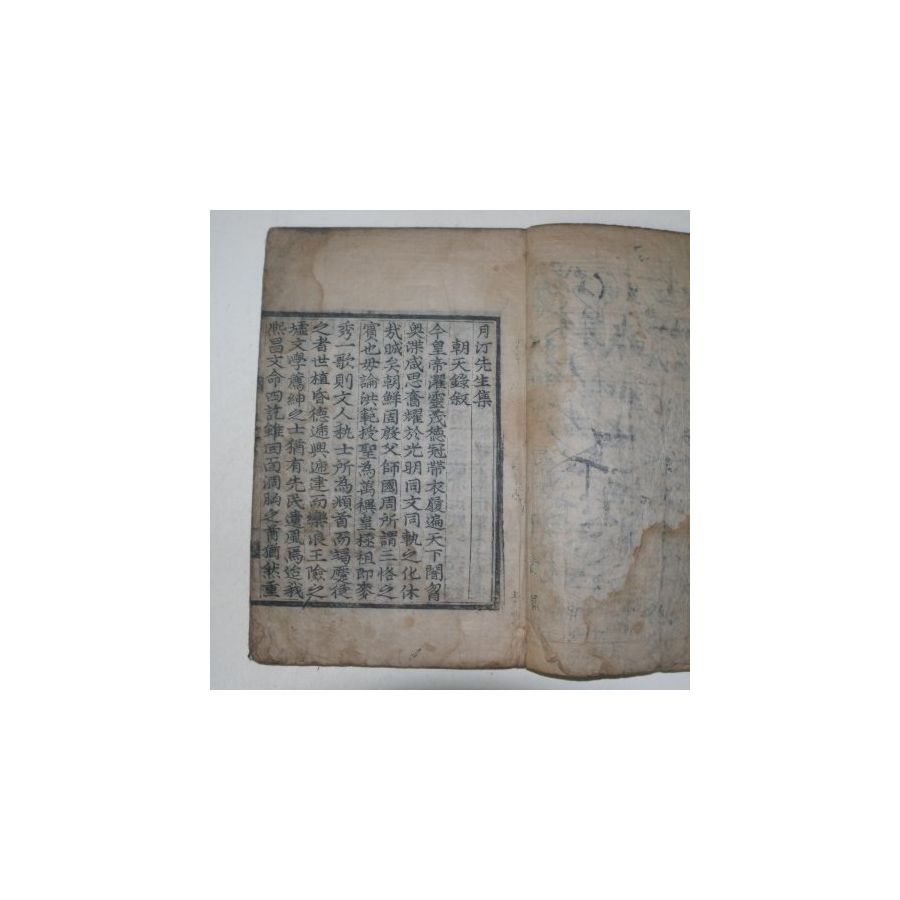 月汀先生集
朝天錄叙
今皇帝濯靈茂德冠帶衣履遍天下闇曶
奥渫咸思奮耀於光明同文同軌之化休
哉睋矣朝鮮固殷父師國周所謂三恪之
賓也毋論洪範授聖為萬禩皇極祖即麥
秀一歌則文人執士所為頫首而蝎蹷徒
之者世植昏德遞興遞建而樂浪王險之
墟文學薦紳之士猶有先民遺風焉迨我
熙昌文命四訖雖回面涸胸之酋猶然重